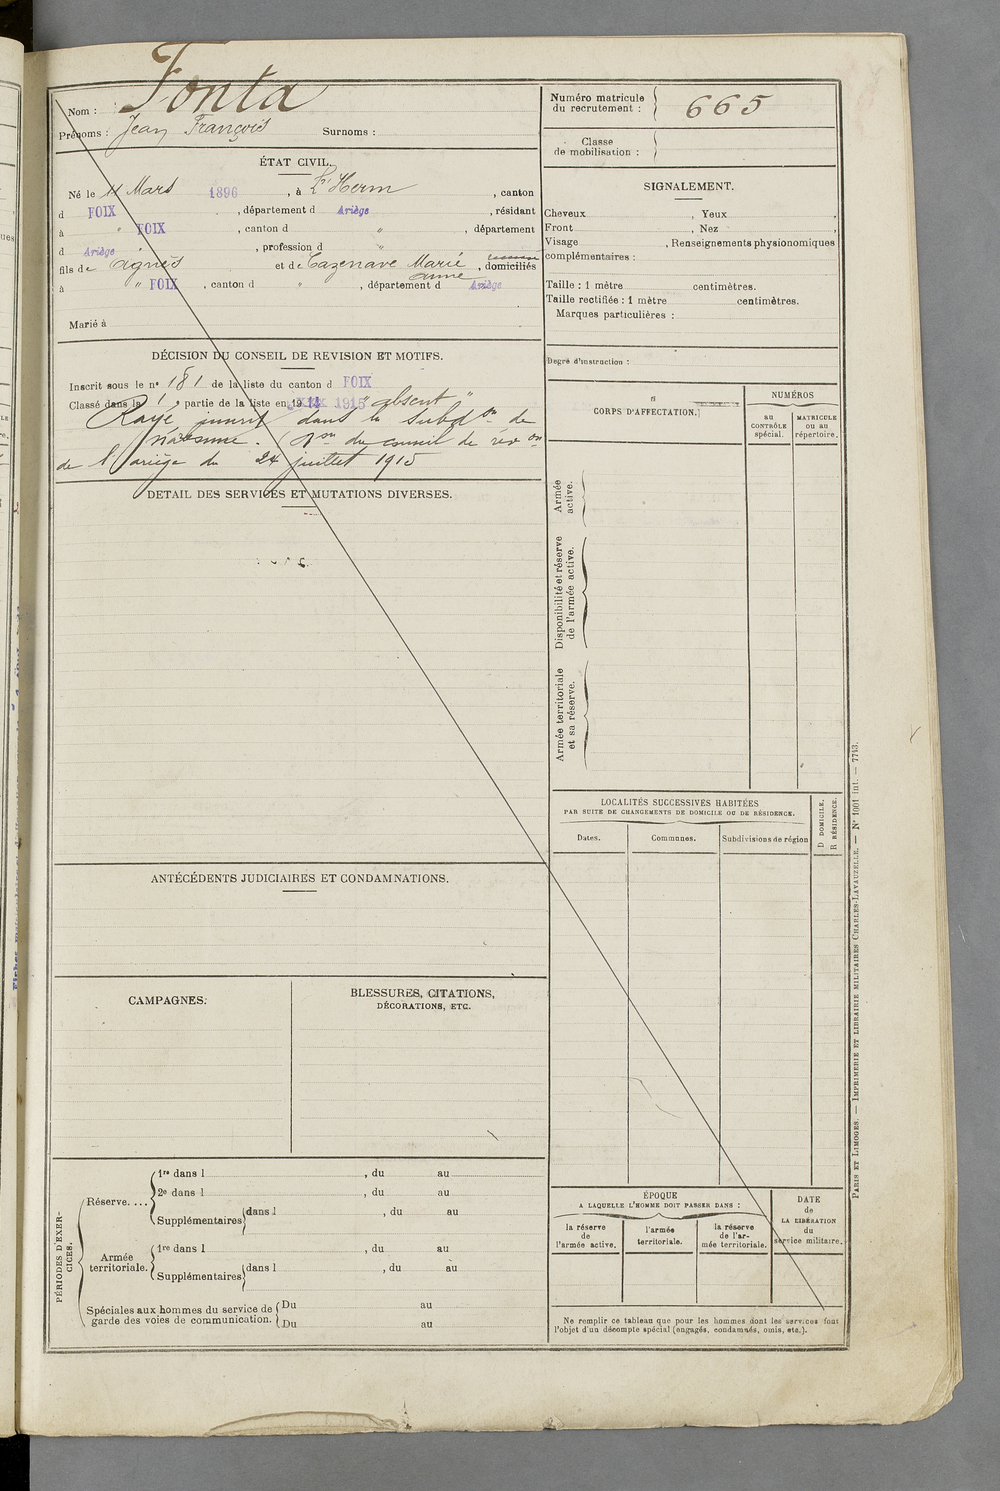 Nom : Fonta
Prénoms : Jean François Surnoms :
ÉTAT CIVIL.
Né le 11 Mars 1896, à L'Herm, canton
d FOIX, département d Ariège, résidant
à " FOIX, canton d ", département
d Ariège, profession d "
fils de et de Cazenave Marie, domiciliés
anne
à " FOIX, canton d ", département d Ariège
Marié à
DÉCISION DU CONSEIL DE REVISION ET MOTIFS.
Inscrit sous le n° 181 de la liste du canton d FOIX
Classé dans la 1e partie de la liste en 1915 "absent"
Rayé, inscrit dans la subdon de
Narbonne. Don du conseil de révon
de l'ariège du 24 juillet 1915
DETAIL DES SERVICES ET MUTATIONS DIVERSES.
ANTÉCÉDENTS JUDICIAIRES ET CONDAMNATIONS.
CAMPAGNES.
BLESSURES, CITATIONS,
DÉCORATIONS, ETC.
PÉRIODES D'EXER-
CICES.
Réserve....
1re dans l , du au
2e dans l , du au
Supplémentaires dans l , du au
Armée
territoriale.
1re dans l , du au
Supplémentaires dans l , du au
Spéciales aux hommes du service de
garde des voies de communication.
Du au
Du au
Numéro matricule
du recrutement : 665
Classe
de mobilisation :
SIGNALEMENT.
Cheveux , Yeux ,
Front , Nez ,
Visage , Renseignements physionomiques
complémentaires :
Taille : 1 mètre centimètres.
Taille rectifiée : 1 mètre centimètres.
Marques particulières :
Degré d'instruction :
CORPS D'AFFECTATION.
NUMÉROS
au
CONTRÔLE
spécial.
MATRICULE
ou au
répertoire.
Armée
active.
Disponibilité et réserve
de l'armée active.
Armée territoriale
et sa réserve.
LOCALITÉS SUCCESSIVES HABITÉES
PAR SUITE DE CHANGEMENTS DE DOMICILE OU DE RÉSIDENCE.
Dates.
Communes.
Subdivisions de région
D DOMICILE.
R RÉSIDENCE.
ÉPOQUE
A LAQUELLE L'HOMME DOIT PASSER DANS :
la réserve
de
l'armée active.
l'armée
territoriale.
la réserve
de l'ar-
mée territoriale.
DATE
de
LA LIBÉRATION
du
service militaire.
Ne remplir ce tableau que pour les hommes dont les services font
l'objet d'un décompte spécial (engagés, condamnés, omis, etc.).
PARIS ET LIMOGES. — IMPRIMERIE ET LIBRAIRIE MILITAIRES CHARLES-LAVAUZELLE. — N° 1001 int. — 7743.